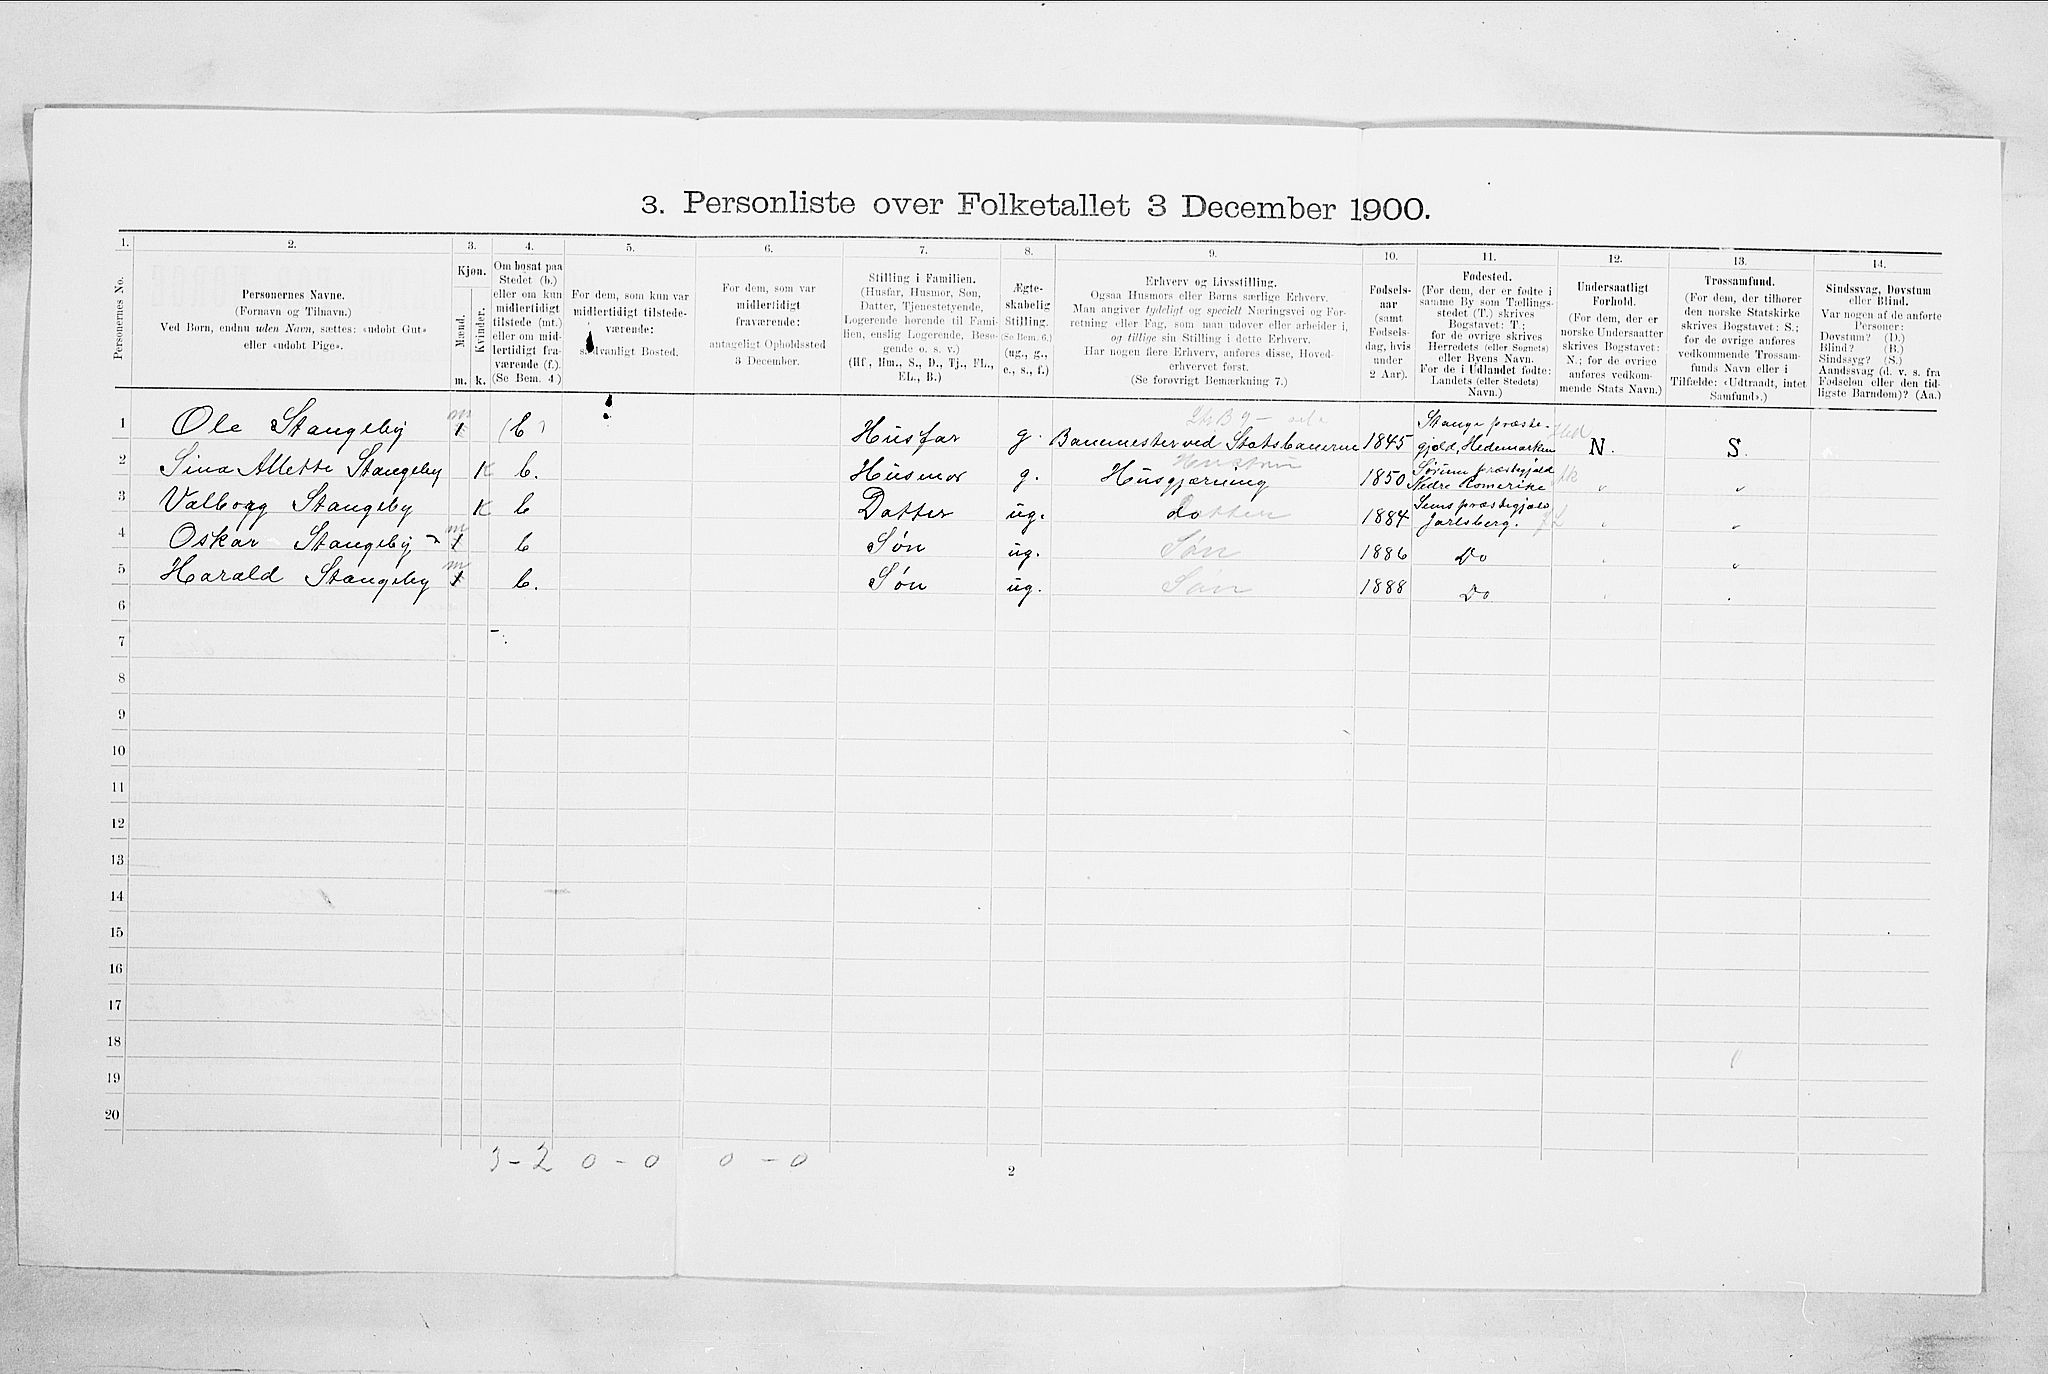 3. Personliste over Folketallet 3 December 1900.
1. 2. 3. 4. 5. 6. 7. 8. 9. 10. 11. 12. 13. 14.
Personernes No.
Personernes Navne.
(Fornavn og Tilnavn.)
Ved Børn, endnu uden Navn, sættes: «udøbt Gut»
eller «udøbt Pige».
Kjøn.
Mænd.
Kvinder.
m. k.
Om bosat paa
Stedet (b.)
eller om kun
midlertidigt
tilstede (mt.)
eller om mid-
lertidigt fra-
værende (f.).
(Se Bem. 4.)
For dem, som kun var
midlertidigt tilstede-
værende:
sædvanligt Bosted.
For dem, som var
midlertidigt
fraværende:
antageligt Opholdssted
3 December.
Stilling i Familien.
(Husfar, Husmor, Søn,
Datter, Tjenestetyende,
Logerende hørende til Fami-
lien, enslig Logerende, Besø-
gende o. s. v.)
(Hf., Hm., S., D., Tj., FL.,
EL., B.)
Ægte-
skabelig
Stilling.
(Se Bem. 6.)
(ug., g.,
e., s., f.)
Erhverv og Livsstilling.
Ogsaa Husmors eller Børns særlige Erhverv.
Man angiver tydeligt og specielt Næringsvei og For-
retning eller Fag, som man udøver eller arbeider i,
og tillige sin Stilling i dette Erhverv.
Har nogen flere Erhverv, anføres disse, Hoved-
erhvervet først.
(Se forøvrigt Bemærkning 7.)
Fødsels-
aar
(samt
Fødsels-
dag, hvis
under
2 Aar).
Fødested.
(For dem, der er fødte i
samme By som Tællings-
stedet (T.) skrives
Bogstavet: T;
for de øvrige skrives
Herredets (eller Sognets)
eller Byens Navn.
For de i Udlandet fødte:
Landets (eller Stedets)
Navn.)
Undersaatligt
Forhold.
(For dem, der er
norske Undersaatter
skrives Bogstavet:
N.; for de øvrige
anføres vedkom-
mende Stats Navn.)
Trossamfund.
(For dem, der tilhører
den norske Statskirke
skrives Bogstavet: S.;
for de øvrige anføres
vedkommende Trossam-
funds Navn eller i
Tilfælde: «Udtraadt, intet
Samfund».)
Sindssvag, Døvstum
eller Blind.
Var nogen af de anførte
Personer:
Døvstum? (D.)
Blind? (B.)
Sindssyg? (S.)
Aandssvag (d. v. s. fra
Fødselen eller den tid-
ligste Barndom)? (Aa.)
1 Ole Stangeby m 1 (b) Husfar g. Banemester ved Statsbanerne 1845 Stange præste-
gjeld, Hedemarken Hed N. S.
2 Sina Allette Stangeby K b. Husmor g. Husgjærning 1850 Sørum præstegjeld
Nedre Romerike Ak " "
3 Valborg Stangeby K b Datter ug. datter 1884 Sems præstegjeld
Jarlsberg. " "
4 Oskar Stangeby m 1 b Søn ug. Søn 1886 Do " "
5 Harald Stangeby m 1 b. Søn ug. Søn 1888 Do " "
6
7
8
9
10
11
12
13
14
15
16
17
18
19
20
3 - 2 0 - 0 0 - 0
2